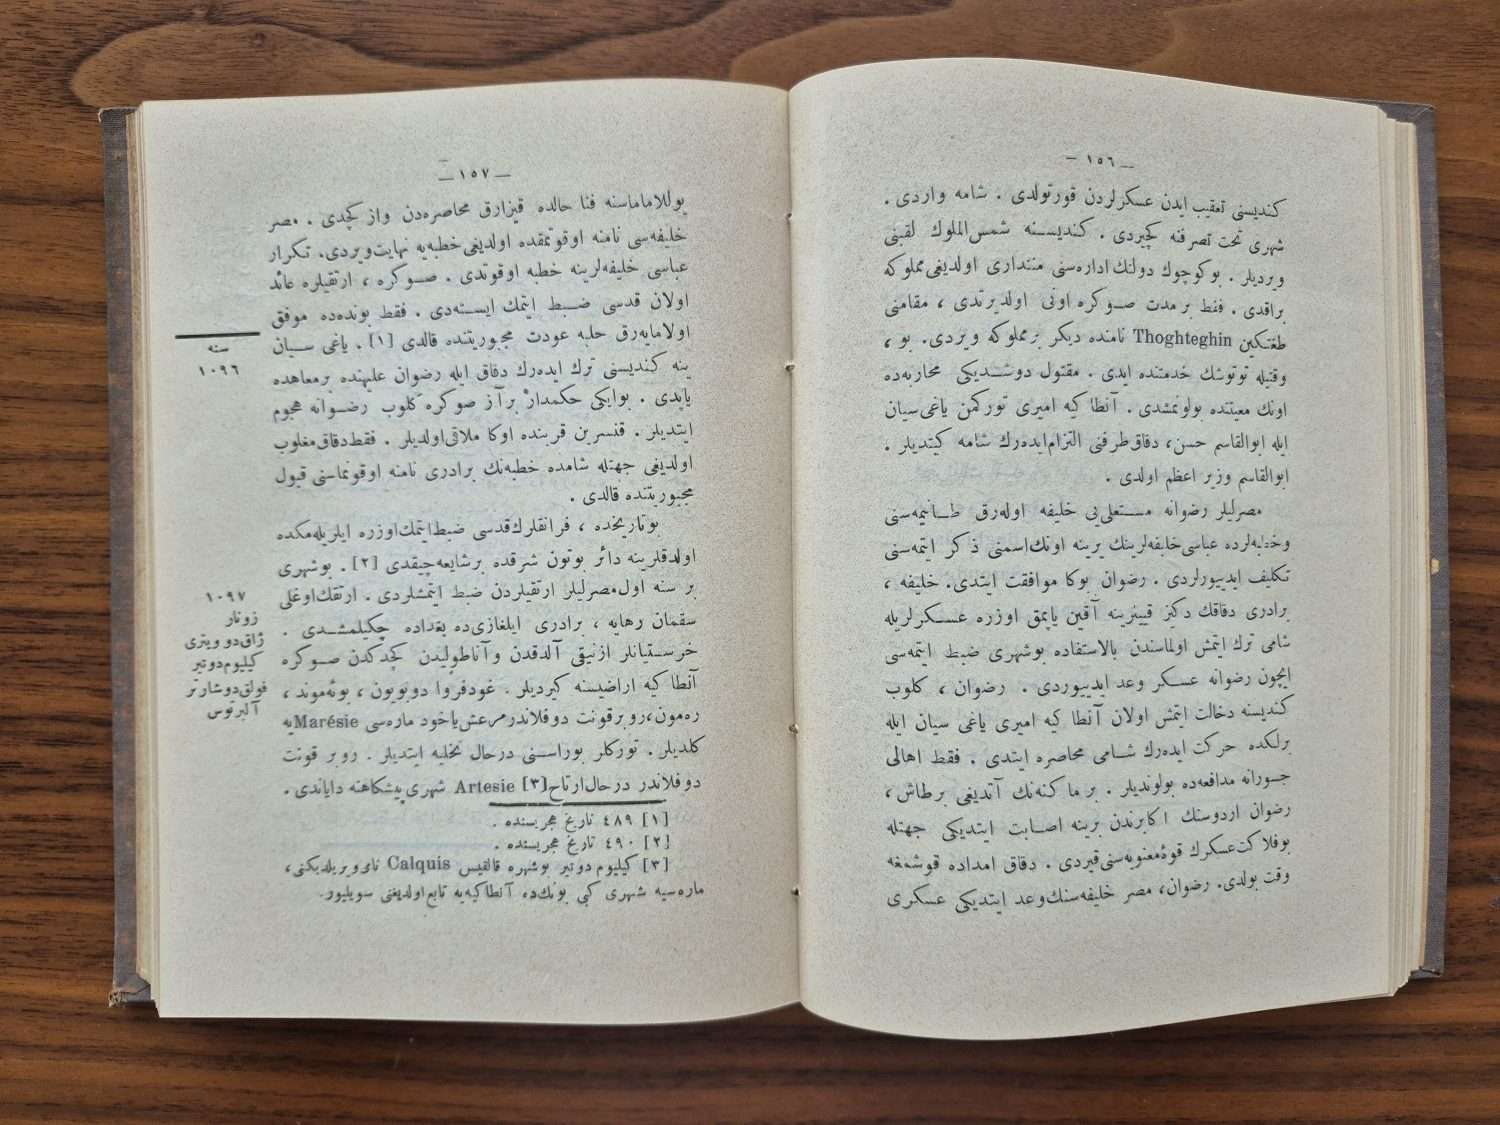 — ١٥٦ —
كنديسنى تعقيب ايدن عسكرلردن قورتولدى . شامه واردى .
شهرى تحت تصرفنه كچيردى . كنديسنه شمس‌الملوك لقبنى
ويرديلر . بوكوچوك دولتك اداره‌سنى منتدارى اولديغى مملوكه
براقدى . فقط بر مدت صوكره اونى اولديرتدى ، مقامنى
طغتكين Thoghteghin نامنده ديكر بر مملوكه ويردى . بو ،
وقتيله توتوشك خدمتنده ايدى . مقتول دوشديكى محاربه‌ده
اونك معيتنده بولونمشدى . آنطا كيه اميرى توركمن ياغى‌سيان
ايله ابوالقاسم حسن، دقاق‌طرفنى التزام‌ايده‌رك شامه كيتديلر .
ابوالقاسم وزير اعظم اولدى .
مصرليلر رضوانه مستعلى‌يى خليفه اوله‌رق طانيمه‌سنى
وخطبه‌لرده عباسى خليفه‌لرينك يرينه اونك‌اسمنى ذكر ايتمه‌سنى
تكليف ايدييورلردى . رضوان بوكا موافقت ايتدى. خليفه ،
برادرى دقاقك دكيز قييلرينه آقين ياپمق اوزره عسكرلريله
شامى ترك ايتمش اولماسندن بالاستفاده بوشهرى ضبط ايتمه‌سى
ايچون رضوانه عسكر وعد ايدييوردى . رضوان ، كلوب
كنديسنه دخالت ايتمش اولان آنطا كيه اميرى ياغى سيان ايله
برلكده حركت ايده‌رك شامى محاصره ايتدى . فقط اهالى
جسورانه مدافعه‌ده بولونديلر . بر ما كنه‌نك آتديغى برطاش،
رضوان اردوسنك اكابرندن برينه اصابت ايتديكى جهتله
بوفلاكت‌عسكرك قوهٔ‌معنويه‌سنى‌قيردى . دقاق امداده قوشمغه
وقت بولدى. رضوان، مصر خليفه‌سنك‌وعد ايتديكى عسكرى
— ١٥٧ —
يوللاماماسنه فنا حالده قيزارق محاصره‌دن واز كچدى . مصر
خليفه‌سى نامنه اوقوتمقده اولديغى خطبه‌يه نهايت‌ويردى. تكرار
عباسى خليفه‌لرينه خطبه اوقوتدى . صوكره ، ارتقيلره عائد
اولان قدسى ضبط ايتمك ايسته‌دى . فقط بونده‌ده موفق
اولامايه‌رق حلبه عودت مجبوريتنده قالدى [١] . ياغى سيان
ينه كنديسنى ترك ايده‌رك دقاق ايله رضوان عليهنده برمعاهده
ياپدى . بوايكى حكمدار برآز صوكره كلوب رضوانه هجوم
ايتديلر . قنسرين قربنده اوكا ملاقى‌اولديلر . فقط‌دقاق‌مغلوب
اولديغى جهتله شامده خطبه‌نك برادرى نامنه اوقونماسنى قبول
مجبوريتنده قالدى .
بوتاريخده ، فرانقلرك‌قدسى ضبط‌ايتمك‌اوزره ايلريله‌مكده
اولدقلرينه دائر بوتون شرقده برشايعه‌چيقدى [٢] . بوشهرى
بر سنه اول‌مصرليلر ارتقيلردن ضبط ايتمشلردى . ارتقك‌اوغلى
سقمان رهايه ، برادرى ايلغازى‌ده بغداده چكيلمشدى .
خرستيانلر ازنيقى آلدقدن وآناطوليدن كچدكدن صوكره
آنطا كيه اراضيسنه كيرديلر . غودفروا دوبويون ، بوئه‌موند ،
ره‌مون،روبرقونت دوفلاندرمرعش‌ياخود ماره‌سى Marésieيه
كلديلر . توركلر بوراسنى درحال تخليه ايتديلر . روبر قونت
دوفلاندر درحال‌ارتاح[٣] Artesie شهرى‌پيشكاهنه داياندى .
[١] ٤٨٩ تاريخ هجريسنده .
[٢] ٤٩٠ تاريخ هجريسنده .
[٣] كيليوم دوتير بوشهره قالقيس Calquis نامى‌ويريلديكنى،
ماره‌سيه شهرى كبى بونك‌ده، آنطاكيه‌يه تابع‌اولديغنى سويليور.
سنه
١٠٩٦
١٠٩٧
زونار
ژاق‌دو ويترى
كيليوم‌دوتير
فولق‌دوشارتر
آلبرتوس